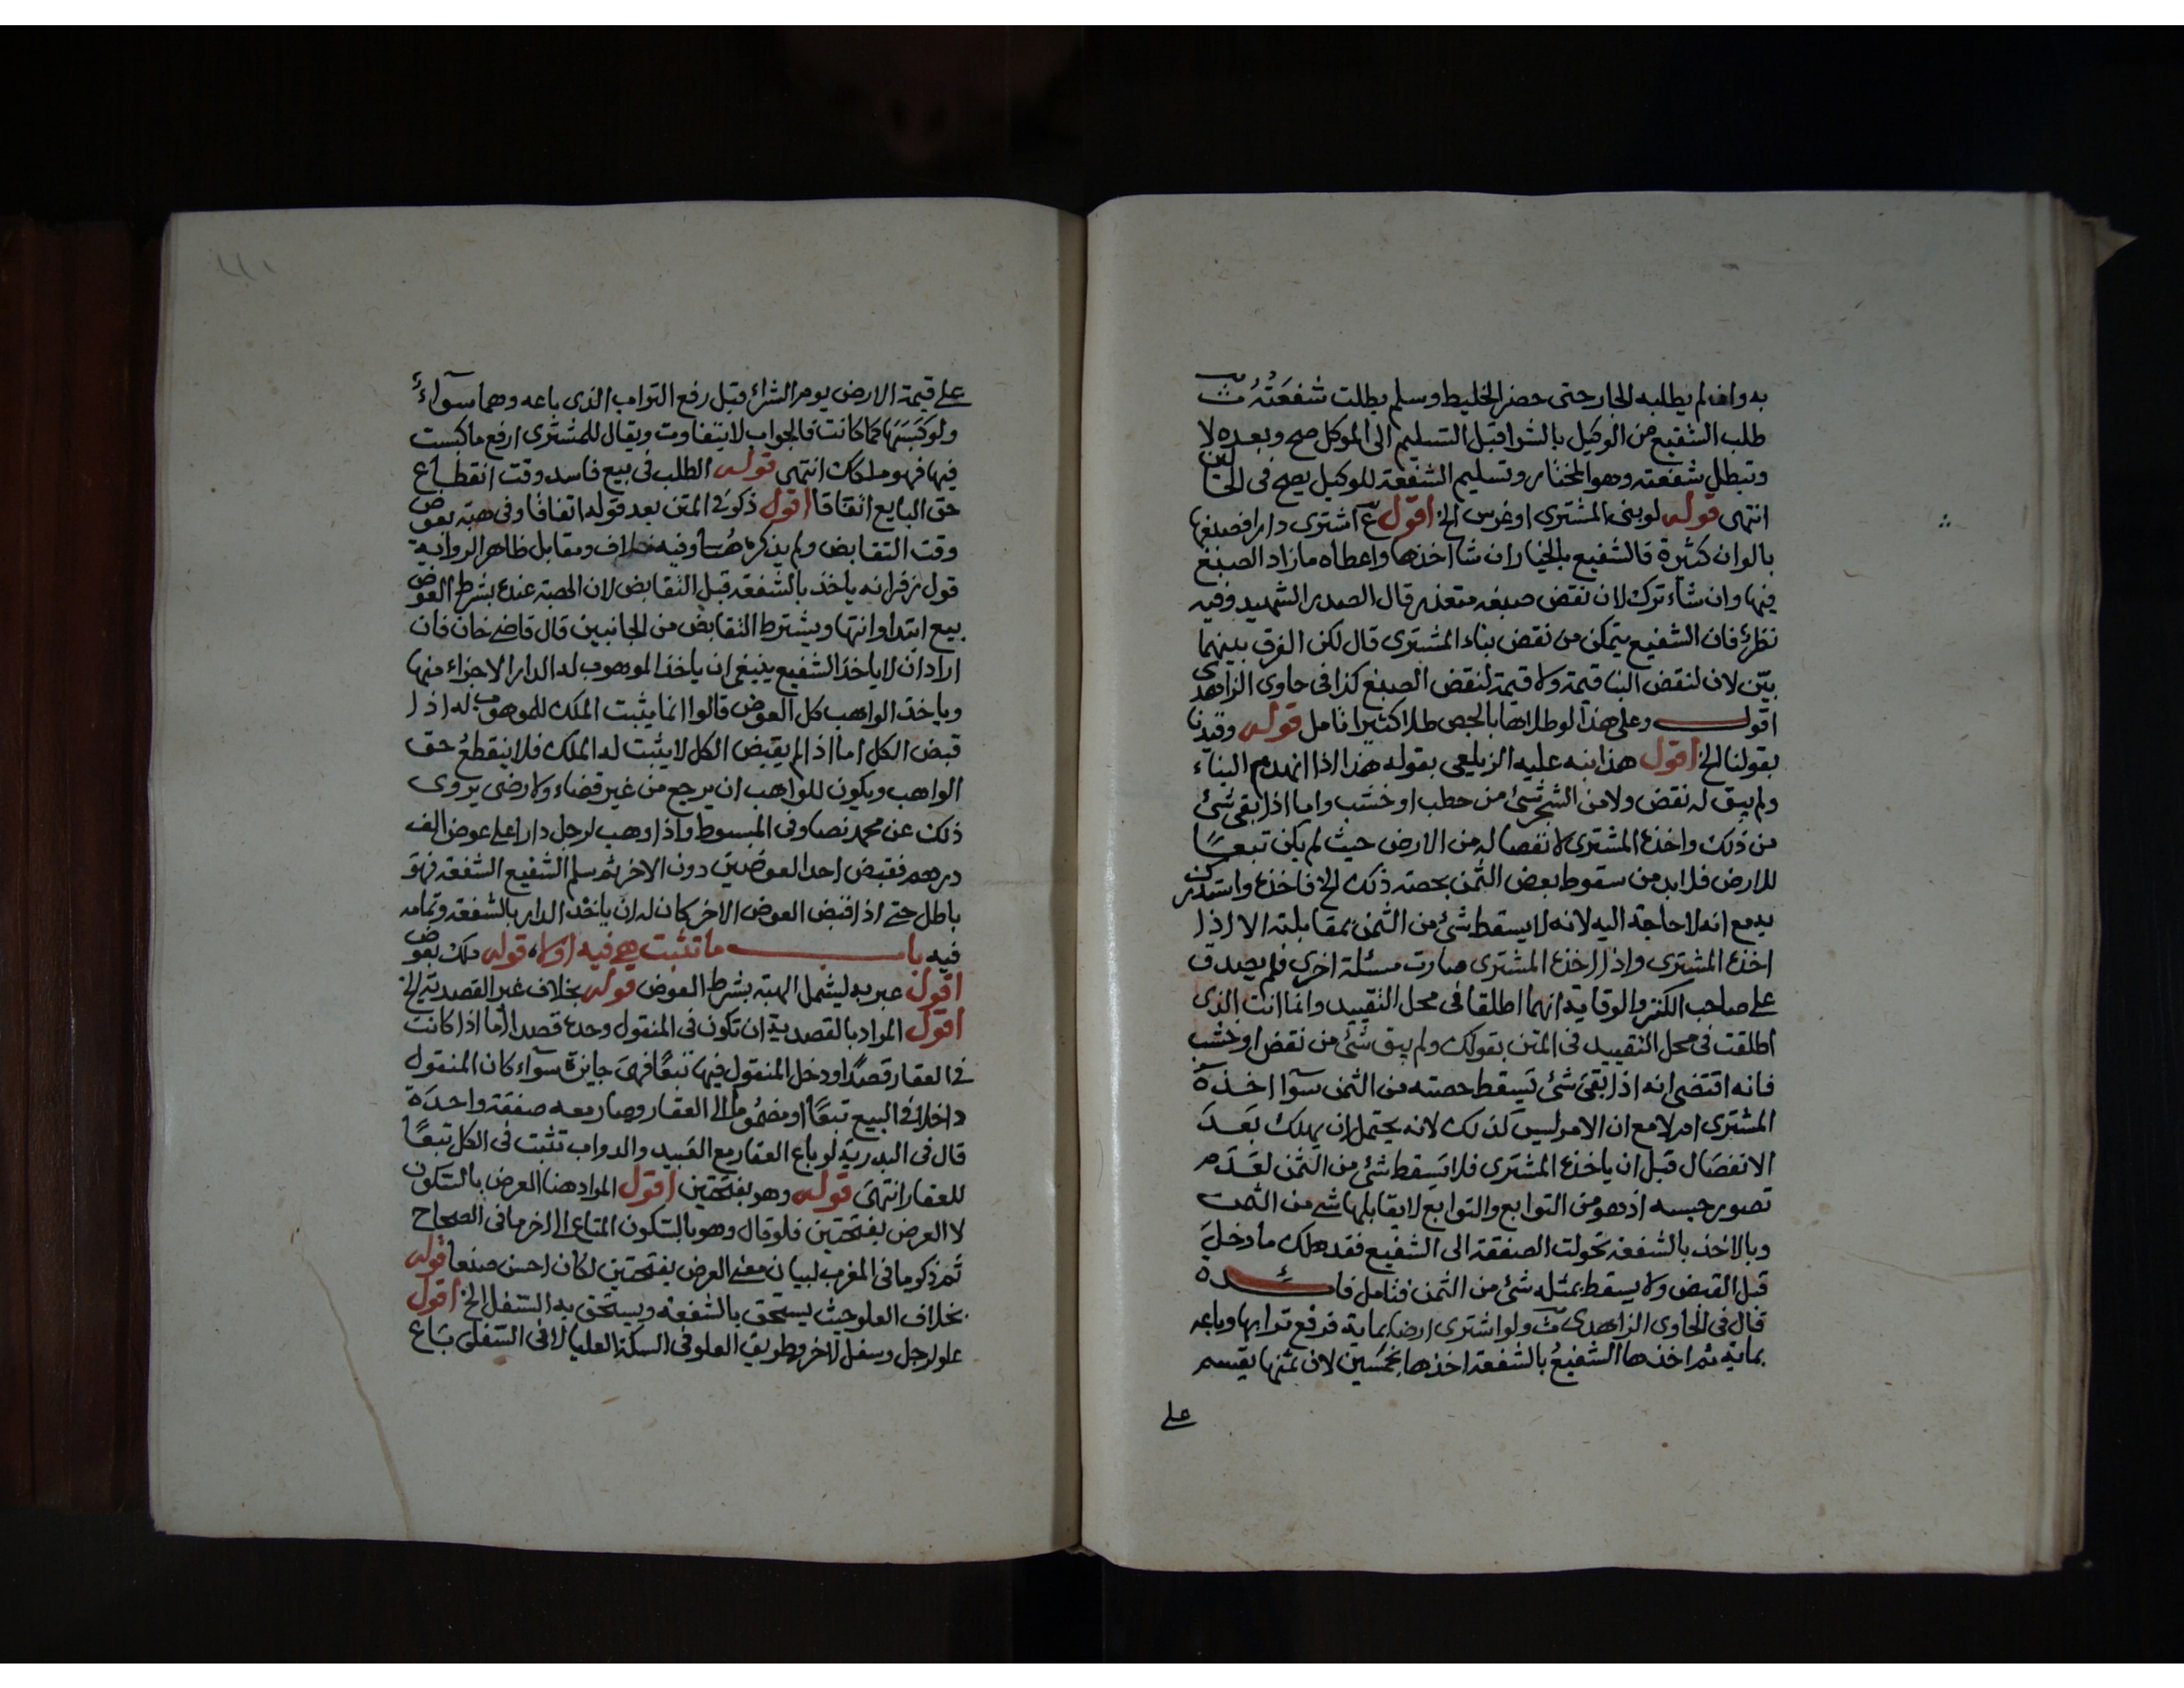 به وان لم يطلبه الجار حتى حضر الخليط وسلم بطلت شفعته ث
طلب الشفيع من الوكيل بالشرا قبل التسليم الى الموكل صح وبعده لا
وتبطل شفعته وهو المختار وتسليم الشفعة للوكيل يصح فى
انتهى قوله لو بنى المشترى او غرس الخ اقول ع اشترى دارا فصبغها
بالوان كثيرة فالشفيع بالخيار ان شا اخذها واعطاه مازاد الصبغ
فيها وان شاء ترك لان نقض صبغه متعذر قال الصدر الشهيد وفيه
نظر فان الشفيع يتمكن من نقض بناء المشترى قال لكن الفرق بينهما
بيّن لان لنقض البنا قيمة ولا قيمة لنقض الصبغ كذا فى حاوى الزاهدى
اقول وعلى هذا لو طلاها بالجص طلا كثيرا تامل قوله وقيدنا
بقولنا الخ اقول هذا نبه عليه الزيلعى بقوله هذا اذا انهدم البناء
ولم يبق له نقض ولا من الشجر شئ من حطب او خشب واما اذا بقى شئ
من ذلك واخذه المشترى لانفصاله من الارض حيث لم يكن تبعًا
للارض فلا بد من سقوط بعض الثمن بحصته ذلك الخ فاخذه واستدرك
به مع انه لا حاجة اليه لانه لا يسقط شئ من الثمن بمقابلته الا اذا
اخذه المشترى واذا اخذه المشترى صارت مسئلة اخرى فلم يصدق
على صاحب الكنز والوقاية انهما اطلقا فى محل التقييد وانما انت الذى
اطلقت فى محل التقييد فى المتن بقولك ولم يبق شئ من نقض او خشب
فانه اقتضى انه اذا بقى شئ يسقط حصته من الثمن سوآ اخذه
المشترى ام لا مع ان الامر ليس كذلك لانه يحتمل ان يهلك بعد
الانفصال قبل ان ياخذه المشترى فلا يسقط شئ من الثمن لعدم
تصور حبسه اذ هو من التوابع والتوابع لا يقابلها شى من الثمن
وبالاخذ بالشفعة تحولت الصفقة الى الشفيع فقد هلك ما دخل
قبل القبض ولا يسقط بمثله شئ من الثمن فتامل فائدة
قال فى الحاوى الزاهدى ث ولو اشترى ارضا بماية فرفع ترابها وباعه
بماية ثم اخذها الشفيع بالشفعة اخذها بخمسين لان ثمنها يقسم
على
على قيمة الارض يوم الشراء قبل رفع التراب الذى باعه وهما سوآء
ولو كبسها كما كانت فالجواب لا يتفاوت ويقال للمشترى ارفع ما كبست
فيها فهو ملكك انتهى قوله الطلب فى بيع فاسد وقت انقطاع
حق البايع اتفاقا اقول ذكر فى المتن بعد قوله اتفاقا وفى هبة بعوض
وقت التقابض ولم يذكره هنا وفيه خلاف ومقابل ظاهر الرواية
قول زفر انه ياخذ بالشفعة قبل التقابض لان الهبة عنده بشرط العوض
بيع ابتدا وانتها ويشترط التقابض من الجانبين قال قاضى خان فان
اراد ان لا ياخذ الشفيع ينبغى ان ياخذ الموهوب له الدار الاجزاء منها
وياخذ الواهب كل العوض قالوا انما يثبت الملك للموهوب له اذا
قبض الكل اما اذا لم يقبض الكل لا يثبت له الملك فلا ينقطع حق
الواهب ويكون للواهب ان يرجع من غير قضاء ولا رضى يروى
ذلك عن محمد نصا وفى المبسوط واذا وهب لرجل دارا على عوض الف
درهم فقبض احد العوضين دون الاخر ثم سلم الشفيع الشفعة فهو
باطل حتى اذا قبض العوض الاخر كان له ان ياخذ الدار بالشفعة وتمامه
فيه باب ما تثبت هى فيه اولا، قوله ملك بعوض
اقول عبر به ليشمل الهبة بشرط العوض قوله بخلاف غير القصدية الخ
اقول المراد بالقصدية ان تكون فى المنقول وحده قصدا اما اذا كانت
فى العقار قصدًا ودخل المنقول فيها تبعًا فهى جايزة سوآء كان المنقول
داخلا فى البيع تبعًا او مضموما الى العقار وصار معه صفقة واحدة
قال فى البدرية لو باع العقار مع العبيد والدواب تثبت فى الكل تبعًا
للعقار انتهى قوله وهو بفتحتين اقول المراد هنا العرض بالسكون
لا العرض بفتحتين فلو قال وهو بالسكون المتاع الى اخر ما فى الصحاح
ثم ذكر ما فى المغرب لبيان معنى العرض بفتحتين لكان احسن صنعا قوله
بخلاف العلو حيث يستحق بالشفعة ويستحق به السفل الخ اقول
علو لرجل وسفل لاخر وطريق العلو فى السكة العليا لا فى السفلى باع